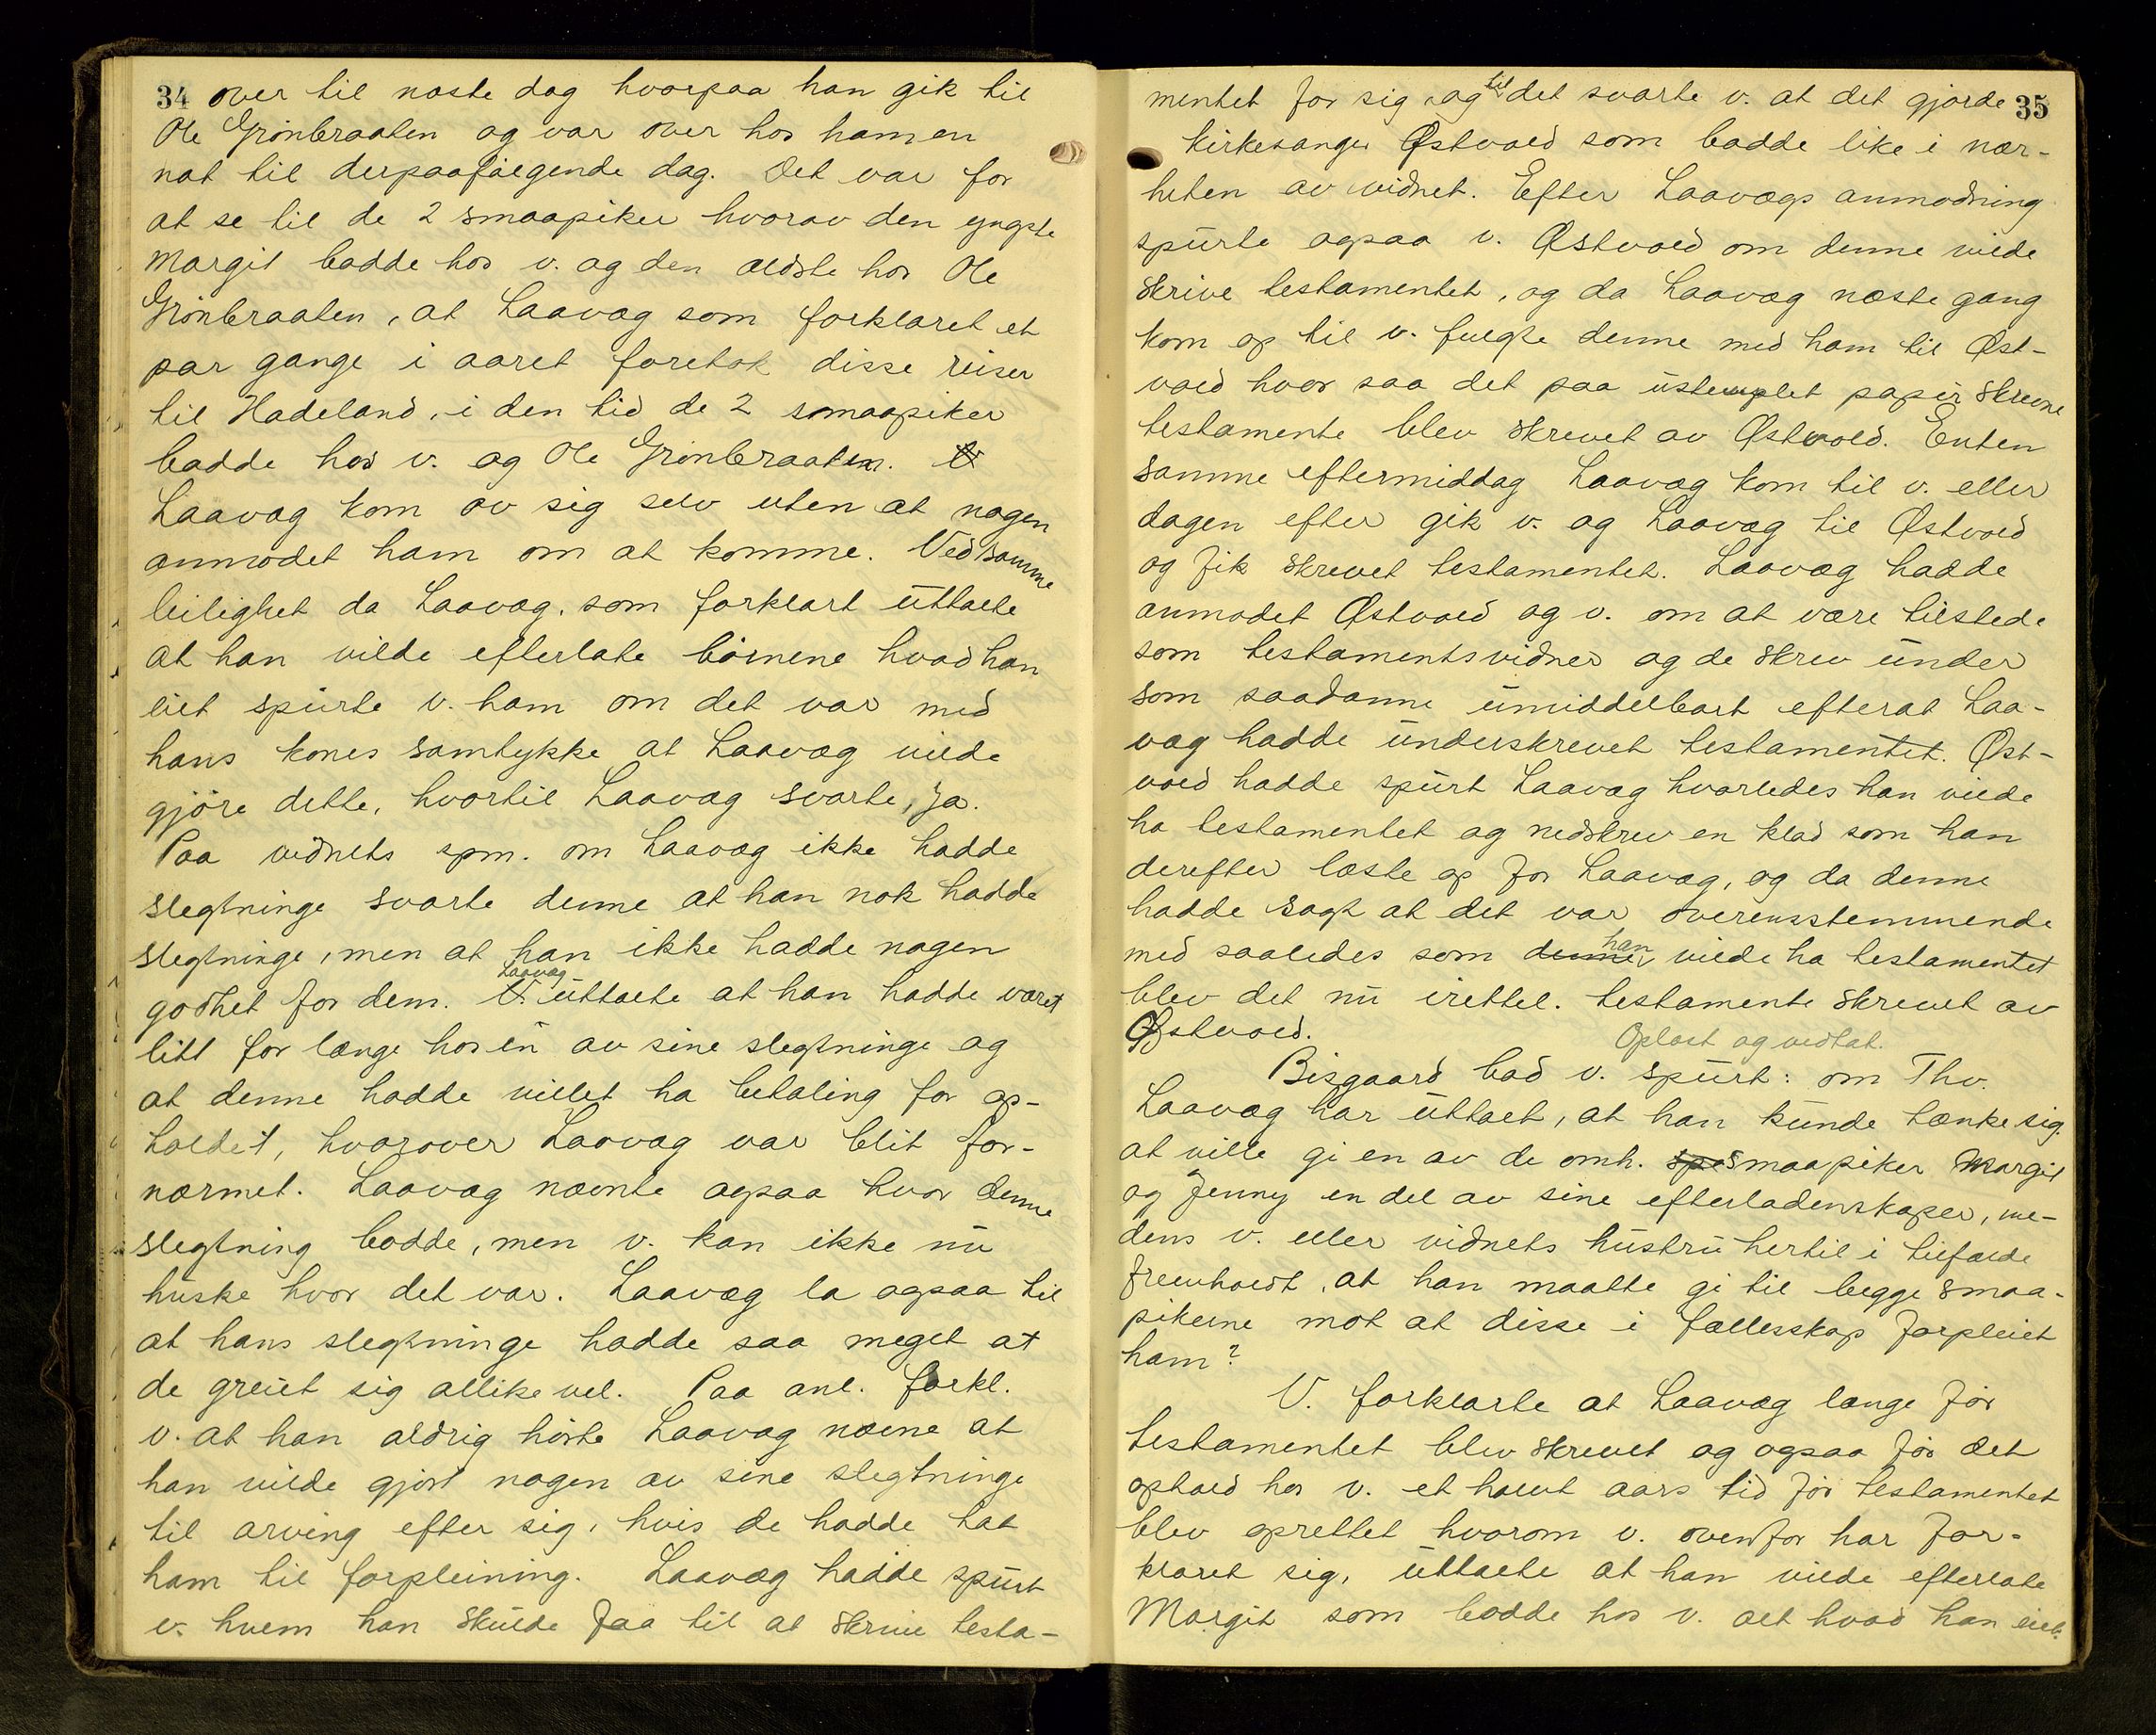 34 over til næste dag hvorpaa han gik til
Ole Grönbraaten og var over hos ham en
nat til derpaafölgende dag. Det var for
at se til de 2 smaapiker hvorav den yngste
Margit bodde hos v. og den ældste hos Ole
Grönbraaten, at Laavag som forklaret et
par gange i aaret foretok disse reiser
til Hadeland, i den tid de 2 smaapiker
bodde hos v. og Ole Grönbraaten.
Laavag kom av sig selv uten at nogen
anmodet ham om at komme. Ved samme
leilighet da Laavag, som forklart uttalte
at han vilde efterlate börnene hvad han
eiet spurte v. ham om det var med
hans kones samtykke at Laavag vilde
gjöre dette, hvortil Laavag svarte, ja.
Paa vidnets spm. om Laavag ikke hadde
slegtninge svarte denne at han nok hadde
slegtninge, men at han ikke hadde nogen
godhet for dem. V. Laavag uttalte at han hadde været
litt for længe hos en av sine slegtninge og
at denne hadde villet ha betaling for op-
holdet, hvorover Laavag var blit for-
nærmet. Laavag nævnte ogsaa hvor denne
slegtning bodde, men v. kan ikke nu
huske hvor det var. Laavag la ogsaa til
at hans slegtninge hadde saa meget at
de greiet sig allikevel. Paa anl. forkl.
v. at han aldrig hörte Laavag nævne at
han vilde gjort nogen av sine slegtninge
til arving efter sig, hvis de hadde hat
ham til forpleining. Laavag hadde spurt
v. hvem han skulde faa til at skrive testa-
mentet for sig og til det svarte v. at det gjorde 35
kirkesanger Østvold som bodde like i nær-
heten av vidnet. Efter Laavags anmodning
spurte ogsaa v. Østvold om denne vilde
skrive testamentet, og da Laavag næste gang
kom op til v. fulgte denne med ham til Øst-
vold hvor saa det paa ustemplet papir skrevne
testamente blev skrevet av Østvold. Enten
samme eftermiddag Laavag kom til v. eller
dagen efter gik v. og Laavag til Østvold
og fik skrevet testamentet. Laavag hadde
anmodet Østvold og v. om at være tilstede
som testamentsvidner og de skrev under
som saadanne umiddelbart efterat Laa-
vag hadde underskrevet testamentet. Øst-
vold hadde spurt Laavag hvorledes han vilde
ha testamentet og nedskrev en klad som han
derefter læste op for Laavag, og da denne
hadde sagt at det var overensstemmende
med saaledes som denne han vilde ha testamentet
blev det nu irettel. testamente skrevet av
Østvold. Oplæst og vedtat.
Bisgaard bad v. spurt: om Thv.
Laavag har uttalt, at han kunde tænke sig
at ville gi en av de omh. spe smaapiker Margit
og Jenny en del av sine efterladenskaper, me-
dens v. eller vidnets hustru hertil i tilfælde
fremholdt, at han maatte gi til begge smaa-
pikerne mot at disse i fællesskap forpleiet
ham?
V. forklarte at Laavag længe för
testamentet blev skrevet og ogsaa för det
ophold hos v. et halvt aars tid för testamentet
blev oprettet hvorom v. ovenfor har for-
klaret sig, uttalte at han vilde efterlate
Margit som bodde hos v. alt hvad han eiet.